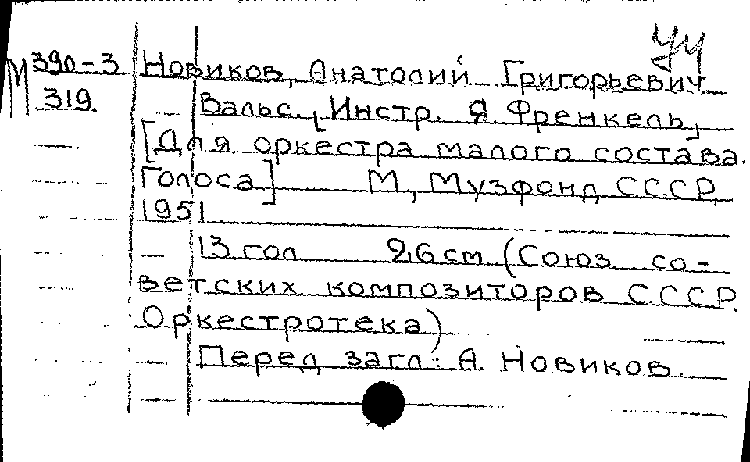 М 390-3 Новиков, Анатолий Григорьевич
319. Вальс. [Инстр. Я Френкель]
[Для оркестра малого состава.
Голоса] М, Музфонд СССР
1951
13 гол 26 см (Союз со-
ветских композиторов СССР.
Оркестротека)
Перед загл: А. Новиков.